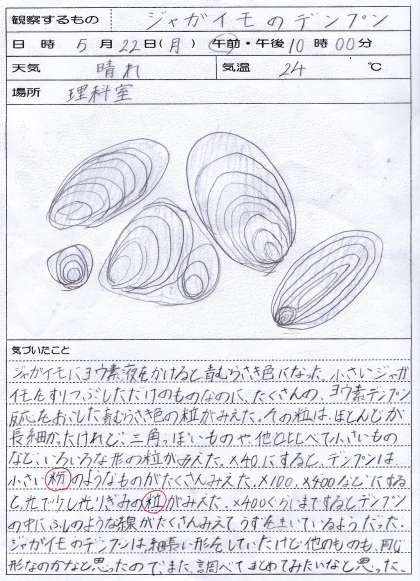 観察するもの ジャガイモのデンプン
日 時 5月22日(月) 午前・午後10時00分
天気 晴れ 気温 24 ℃
場所 理科室
気づいたこと
ジャガイモにヨウ素液をかけると青むらさき色になった。小さいジャガ
イモをすりつぶしただけのものなのに、たくさんの、ヨウ素デンプン
反応をおこした青むらさき色の粒がみえた。その粒は、ほとんどが
長細かったけれど、三角っぽいものや、他と比べて小さいもの
など、いろいろな形の粒がみえた。×40にすると、デンプンは
小さい粉のようなものがたくさんみえた。×100、×400などにする
と、丸で少し光りぎみの粒がみえた。×400ぐらいまですると デンプン
の中に、ふしのような線がたくさんみえてうずをまいているようだった。
ジャガイモのデンプンは、細長い形をしていたけど他のものも、同じ
形なのかなと思ったので、また、調べてまとめてみたいなと思った。